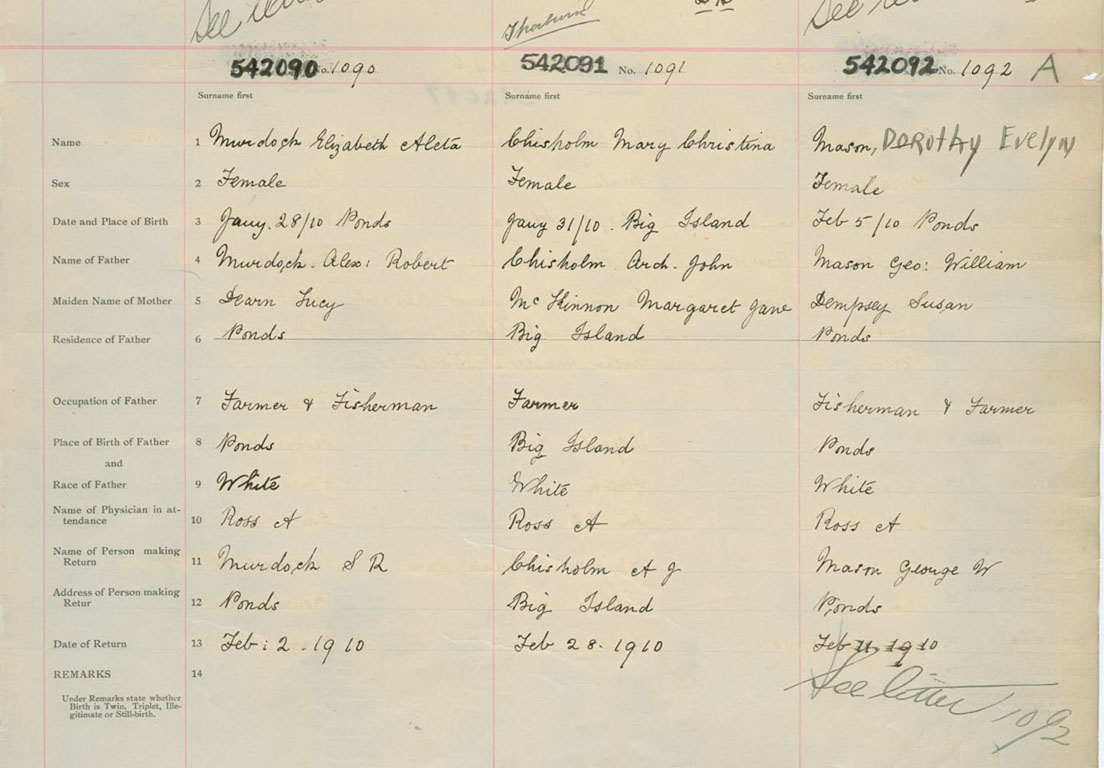 See
Thorburn
See
542090 No. 1090 542091 No. 1091 542092 No. 1092 A
Surname first Surname first Surname first
Name 1 Murdock Elizabeth Aleta Chisholm Mary Christina Mason, DOROTHY Evelyn
Sex 2 Female Female Female
Date and Place of Birth 3 Jany. 28/10 Ponds Jany 31/10. Big Island Feb 5/10 Ponds
Name of Father 4 Murdock. Alex: Robert Chisholm Arch. John Mason Geo: William
Maiden Name of Mother 5 Dearn Lucy McKinnon Margaret Jane Dempsey Susan
Residence of Father 6 Ponds Big Island Ponds
Occupation of Father 7 Farmer & Fisherman Farmer Fisherman & Farmer
Place of Birth of Father 8 Ponds Big Island Ponds
and
Race of Father 9 White White White
Name of Physician in at-
tendance 10 Ross A Ross A Ross A
Name of Person making
Return 11 Murdock S R Chisholm A J Mason George W
Address of Person making
Retur 12 Ponds Big Island Ponds
Date of Return 13 Feb: 2. 1910 Feb 28. 1910 Feb 11. 1910
REMARKS 14
See letter 1092
Under Remarks state whether
Birth is Twin, Triplet, Ille-
gitimate or Still-birth.